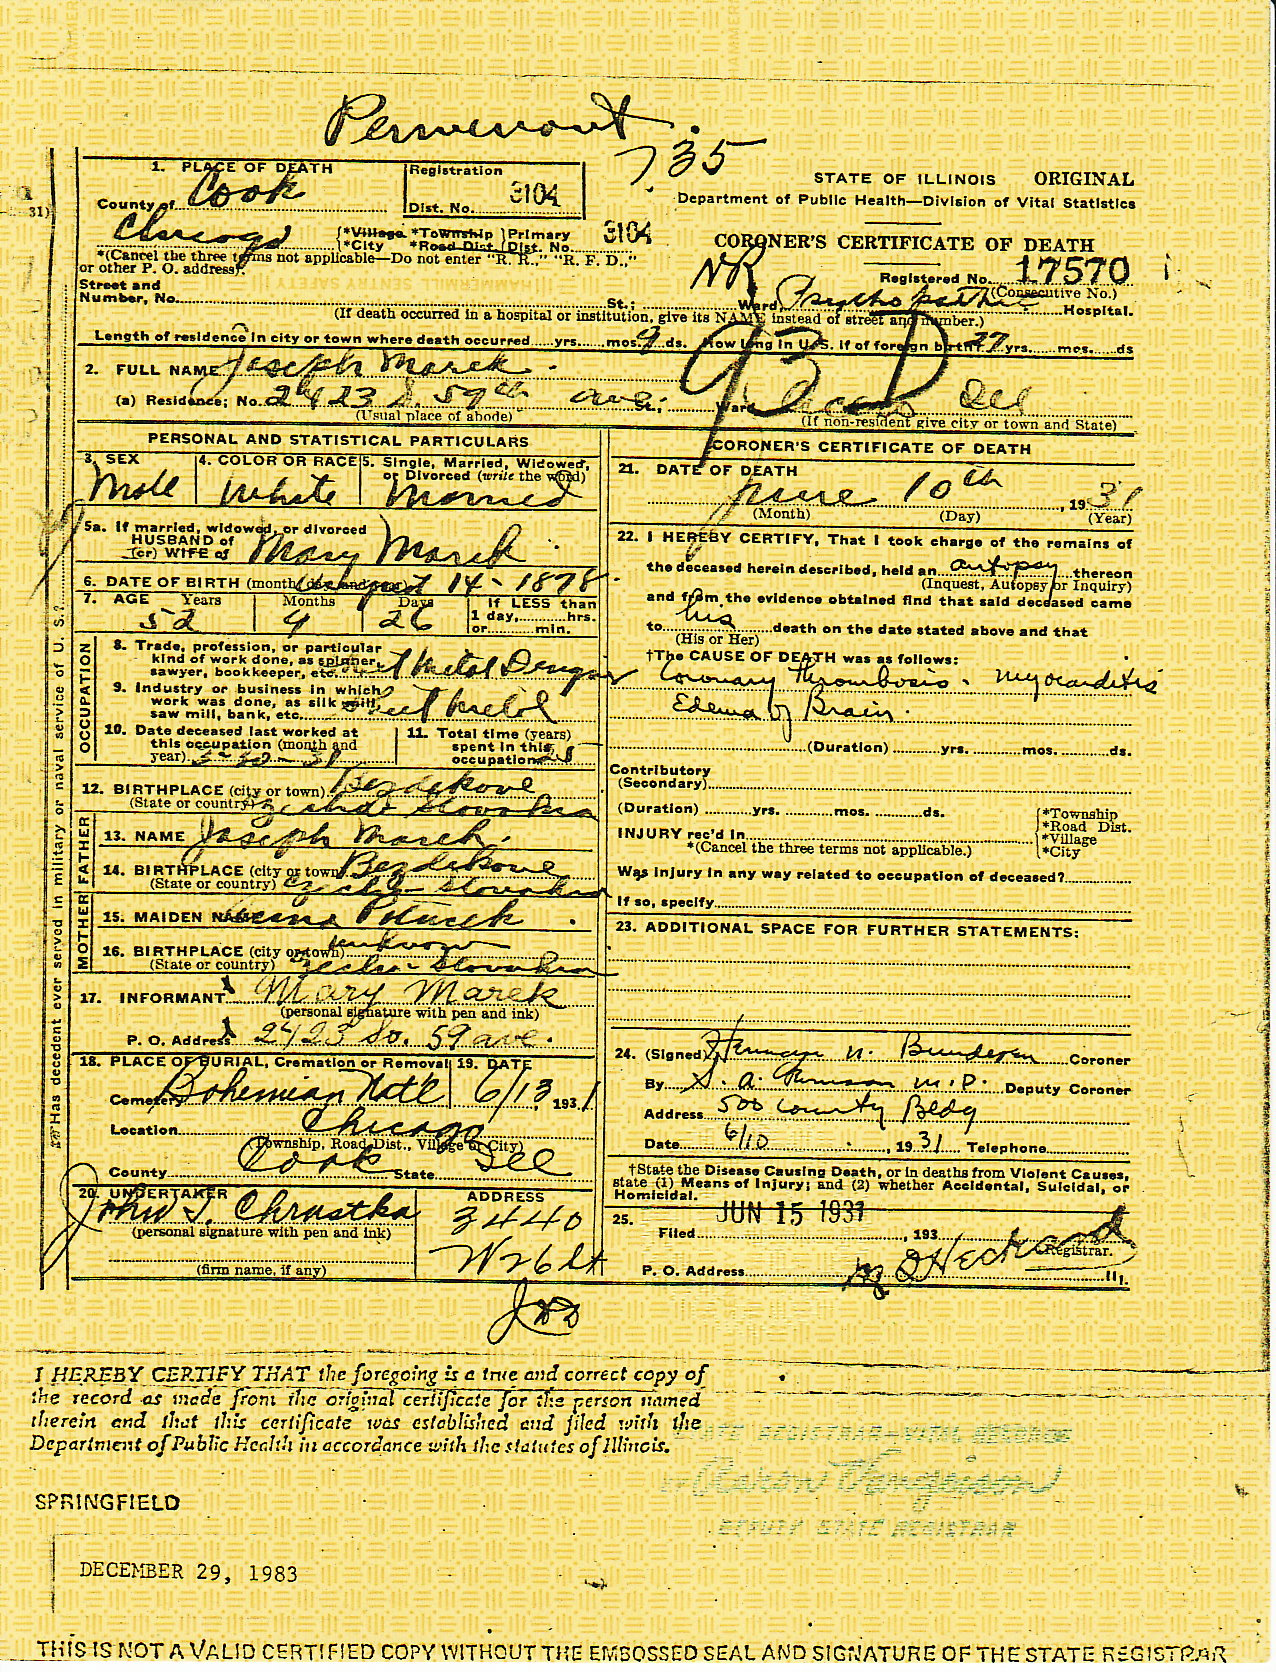 Permenent.
735
1. PLACE OF DEATH
Registration
Dist. No. 3104
County of Cook
STATE OF ILLINOIS ORIGINAL
Department of Public Health—Division of Vital Statistics
Chicago {*Village *Township }Primary 3104
*City *Road Dist. Dist. No.
CORONER'S CERTIFICATE OF DEATH
*(Cancel the three terms not applicable—Do not enter "R. R.," "R. F. D.,"
or other P. O. address).
NR
Registered No. 17570
(Consecutive No.)
Street and
Number, No. St.; Ward, Psychopathic Hospital.
(If death occurred in a hospital or institution, give its NAME instead of street and number.)
Length of residence in city or town where death occurred yrs. mos. 9 ds. How long in U. S. if of foreign birth? 27 yrs. mos. ds
93D
2. FULL NAME Joseph Marek.
(a) Residence; No. 2423 S. 59th ave. St., Ward Cicero Ill
(Usual place of abode)
(If non-resident give city or town and State)
PERSONAL AND STATISTICAL PARTICULARS
3. SEX
Male
4. COLOR OR RACE
White
5. Single, Married, Widowed,
or Divorced (write the word)
Married
5a. If married, widowed, or divorced
HUSBAND of
(or) WIFE of Mary Marek
6. DATE OF BIRTH (month, day, and year) August 14 - 1878.
7. AGE Years Months Days If LESS than
52 9 26 1 day, hrs.
or min.
OCCUPATION
8. Trade, profession, or particular
kind of work done, as spinner,
sawyer, bookkeeper, etc. Sheet Metal Designer
9. Industry or business in which
work was done, as silk mill,
saw mill, bank, etc. Sheet Metal
10. Date deceased last worked at
this occupation (month and
year) 5-30-31
11. Total time (years)
spent in this
occupation 28
12. BIRTHPLACE (city or town) Bezdekove
(State or country) Czecho-Slovakia
FATHER
13. NAME Joseph Marek.
14. BIRTHPLACE (city or town) Bezdekove
(State or country) Czecho-Slovakia
MOTHER
15. MAIDEN NAME Anna
16. BIRTHPLACE (city or town) unknown
(State or country) Czecho-Slovakia
17. INFORMANT Mary Marek
(personal signature with pen and ink)
P. O. Address 2423 So. 59 ave.
18. PLACE OF BURIAL, Cremation or Removal
Cemetery Bohemian Nat'l
19. DATE
6/13, 1931
Location Chicago
(Township, Road Dist., Village or City)
County Cook State Ill
20. UNDERTAKER
John J. Chrastka
(personal signature with pen and ink)
(firm name, if any)
ADDRESS
3440
W 26 St
Has decedent ever served in military or naval service of U. S.?
CORONER'S CERTIFICATE OF DEATH
21. DATE OF DEATH
June 10th, 1931
(Month) (Day) (Year)
22. I HEREBY CERTIFY, That I took charge of the remains of
the deceased herein described, held an autopsy thereon
(Inquest, Autopsy or Inquiry)
and from the evidence obtained find that said deceased came
to his death on the date stated above and that
(His or Her)
†The CAUSE OF DEATH was as follows:
Coronary thrombosis. Myocarditis
Edema of Brain.
(Duration) yrs. mos. ds.
Contributory
(Secondary)
(Duration) yrs. mos. ds.
INJURY rec'd in {*Township
*Road Dist.
*Village
*City
*(Cancel the three terms not applicable.)
Was injury in any way related to occupation of deceased?
If so, specify
23. ADDITIONAL SPACE FOR FURTHER STATEMENTS:
24. (Signed) Herman N. Bundesen Coroner
By M.D. Deputy Coroner
Address 500 County Bldg
Date 6/10, 1931 Telephone
†State the Disease Causing Death, or in deaths from Violent Causes,
state (1) Means of Injury; and (2) whether Accidental, Suicidal, or
Homicidal.
25. JUN 15 1931
Filed , 193
Registrar.
P. O. Address Ill.
I HEREBY CERTIFY THAT the foregoing is a true and correct copy of
the record as made from the original certificate for the person named
therein and that this certificate was established and filed with the
Department of Public Health in accordance with the statutes of Illinois.
STATE REGISTRAR-VITAL RECORDS
DEPUTY STATE REGISTRAR
SPRINGFIELD
DECEMBER 29, 1983
THIS IS NOT A VALID CERTIFIED COPY WITHOUT THE EMBOSSED SEAL AND SIGNATURE OF THE STATE REGISTRAR